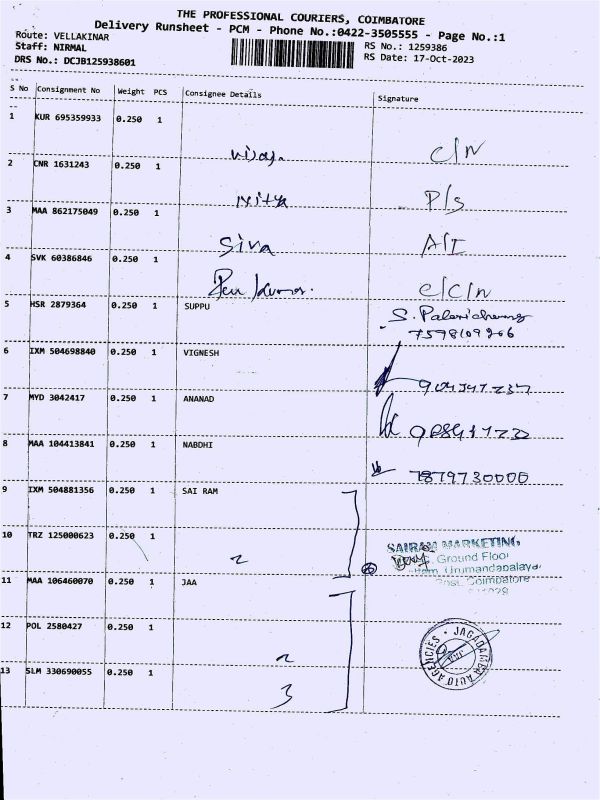 THE PROFESSIONAL COURIERS, COIMBATORE
Delivery Runsheet - PCM - Phone No.:0422-3505555 - Page No.:1
Route: VELLAKINAR
RS No.: 1259386
Staff: NIRMAL
RS Date: 17-Oct-2023
DRS No.: DCJB125938601
S No Consignment No Weight PCS Consignee Details Signature
1 KUR 695359933 0.250 1
C/N
2 CNR 1631243 0.250 1
Nitya P/S
3 MAA 862175049 0.250 1
Siva A/I
4 SVK 60386846 0.250 1
Kumar. C/C/N
5 HSR 2879364 0.250 1 SUPPU
S.
7598109206
6 IXM 504698840 0.250 1 VIGNESH
7 MYD 3042417 0.250 1 ANANAD
8 MAA 104413841 0.250 1 NABDHI
7879730000
9 IXM 504881356 0.250 1 SAI RAM
10 TRZ 125000623 0.250 1
SAIRAM MARKETING,
Ground Floor
2
11 MAA 106460070 0.250 1 JAA
Coimbatore
12 POL 2580427 0.250 1
2
JAGADAMBA AUTO AGENCIES
13 SLM 330690055 0.250 1
3